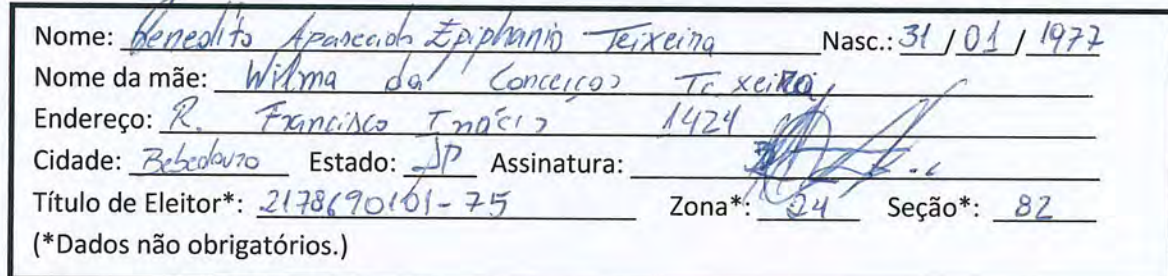 Nome: Benedito Aparecido Epiphanio Teixeira Nasc.: 31 / 01 / 1977
Nome da mãe: Wilma da Conceiçao Teixeira
Endereço: R. Francisco Inácio 1424
Cidade: Bebedouro Estado: SP Assinatura:
Título de Eleitor*: 2178690101-75 Zona*: 24 Seção*: 82
(*Dados não obrigatórios.)